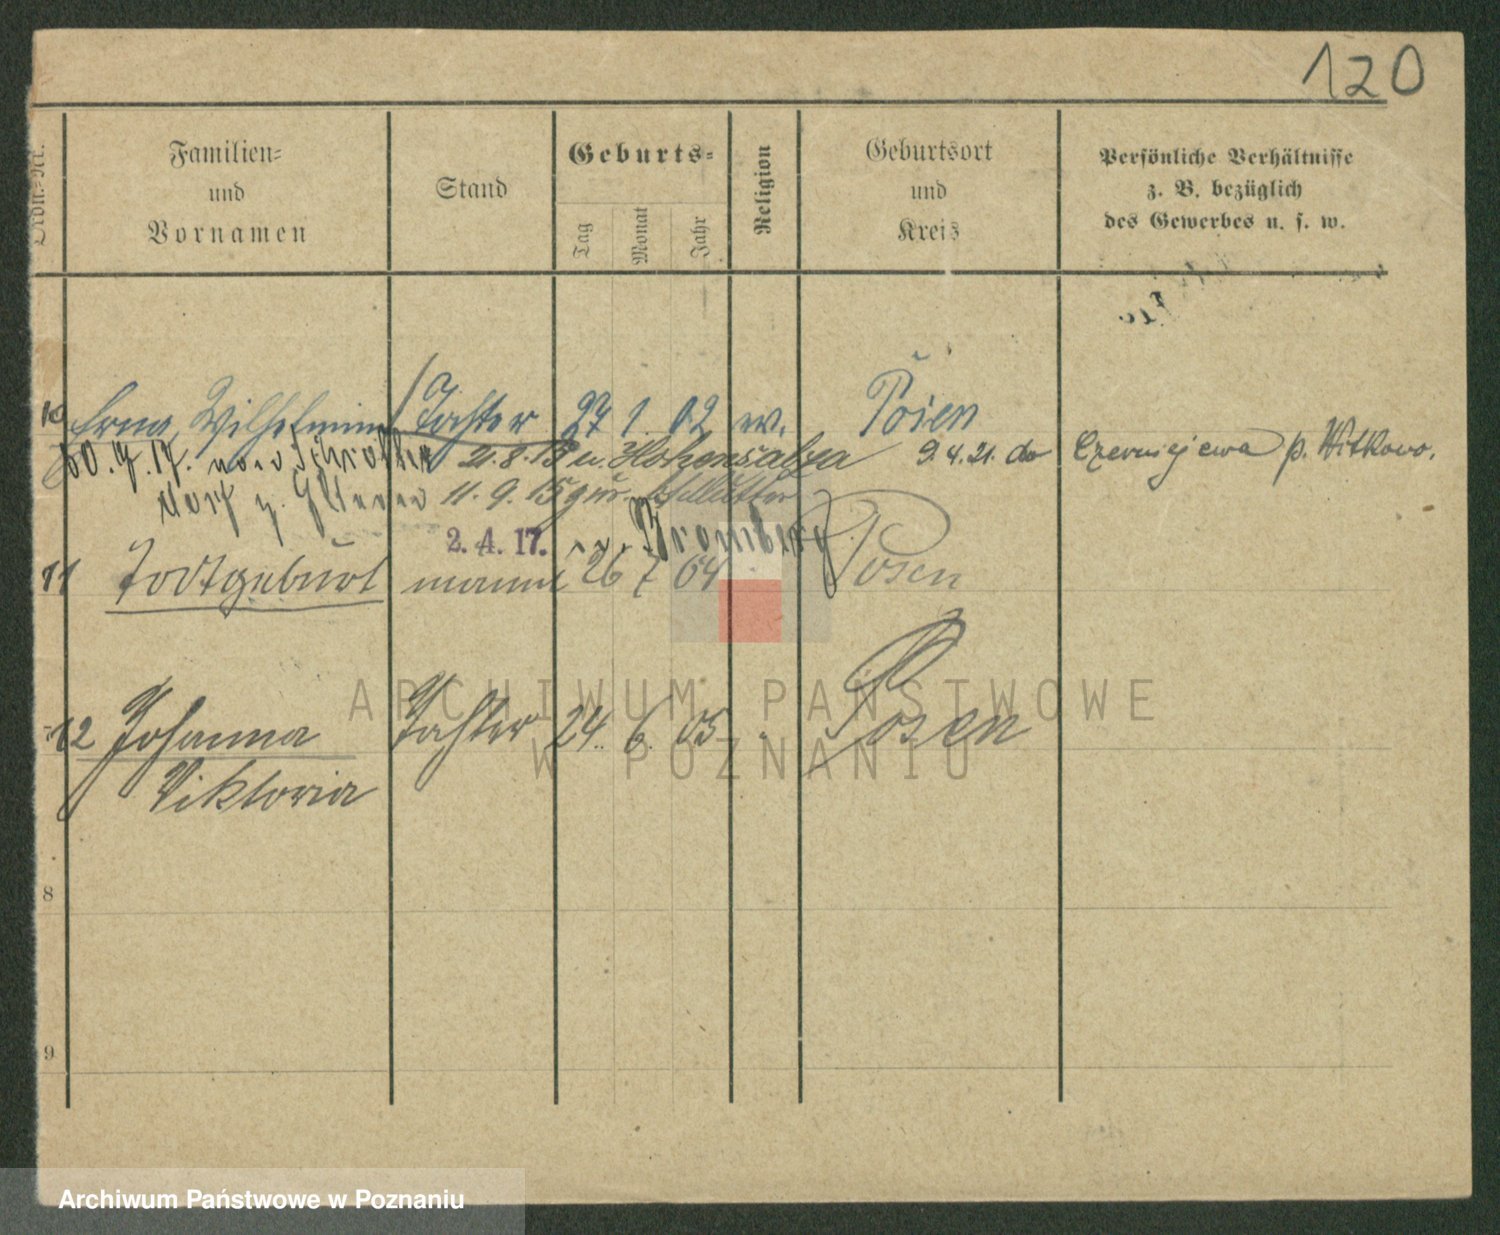 120
Ordn.-Nr.
Familien-
und
Vornamen
Stand
Geburts-
Tag
Monat
Jahr
Religion
Geburtsort
und
Kreis
Persönliche Verhältnisse
z. B. bezüglich
des Gewerbes u. s. w.
10 Erna, Wilhelmine Tochter 27 1. 02 ev. Posen
21.8.13 n. Hohensalza 9.4.21. do Czerniejewo p. Witkowo.
11.9.15 zur.
2. 4. 17. Bromberg
11 Todtgeburt männl 26 7 04 Posen
12 Johanna Tochter 24. 6. 05 Posen
Viktoria
8
9
ARCHIWUM PAŃSTWOWE
W POZNANIU
Archiwum Państwowe w Poznaniu